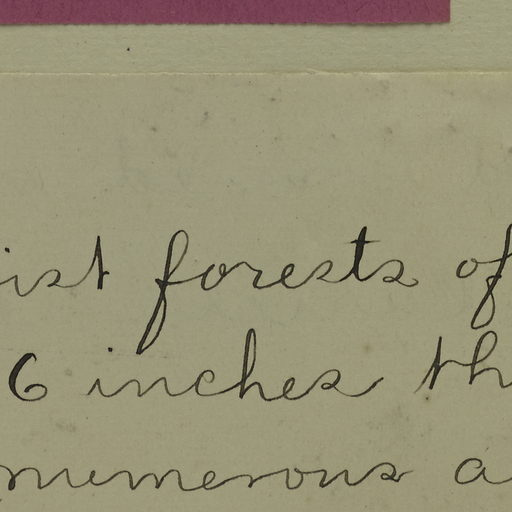 ist forests of
6 inches th
numerous a